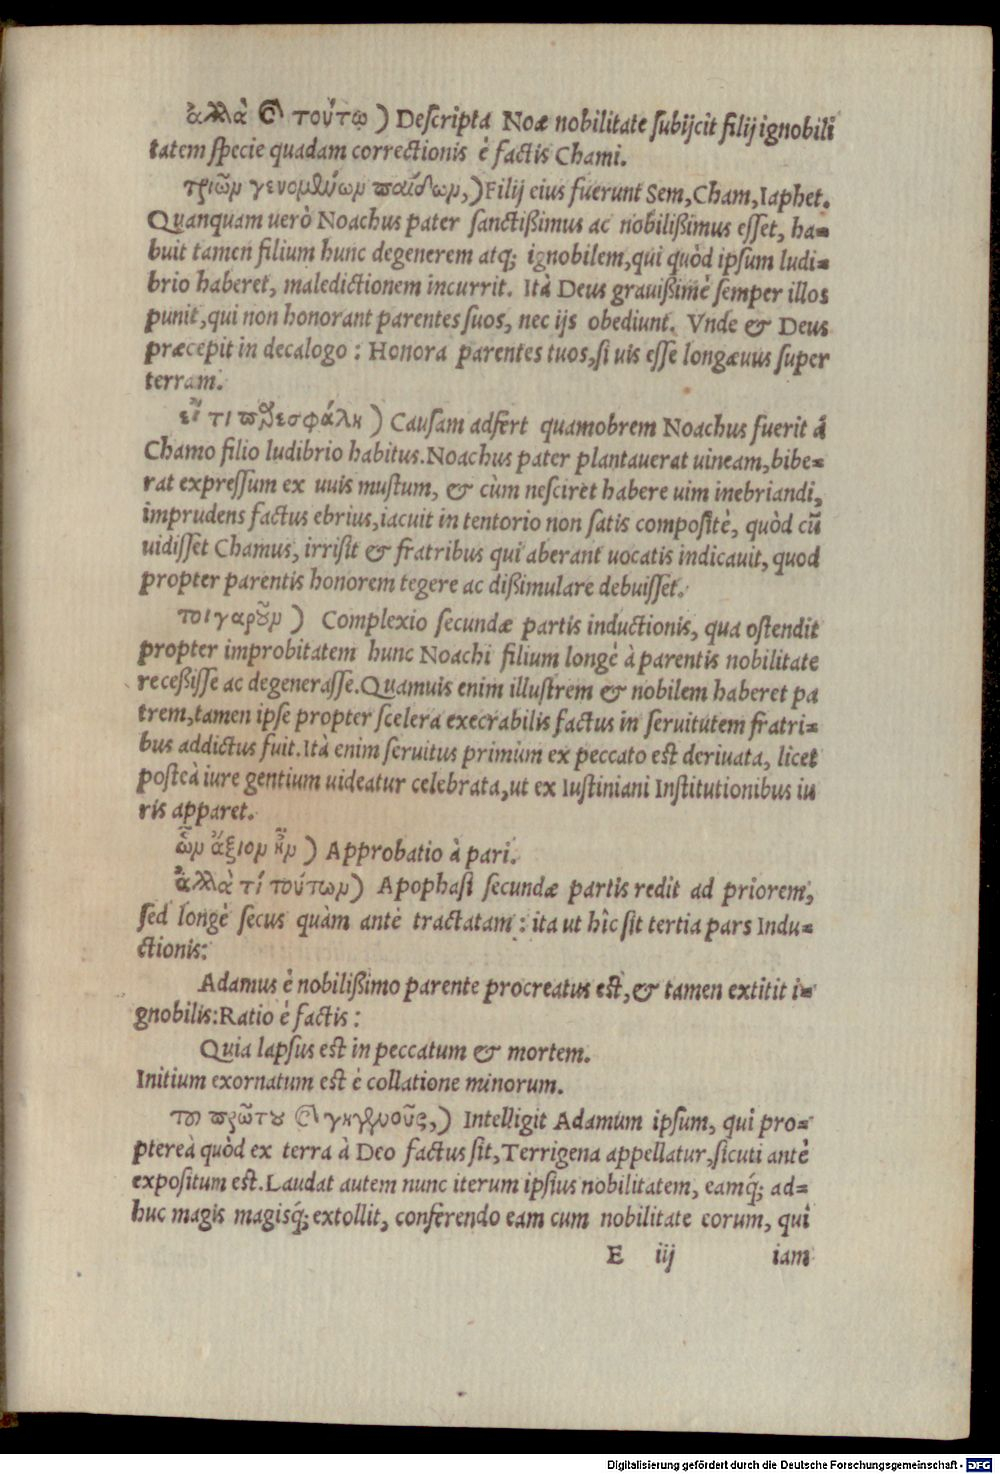 ἀλλὰ καὶ τούτῳ) Descripta Noæ nobilitate subijcit filij ignobili
tatem specie quadam correctionis è factis Chami.
τριῶν γενομένων παίδων,) Filij eius fuerunt Sem, Cham, Iaphet.
Quanquam uerò Noachus pater sanctißimus ac nobilißimus esset, ha=
buit tamen filium hunc degenerem atq; ignobilem, qui quòd ipsum ludi=
brio haberet, maledictionem incurrit. Ità Deus grauißimè semper illos
punit, qui non honorant parentes suos, nec ijs obediunt. Vnde & Deus
præcepit in decalogo : Honora parentes tuos, si uis esse longæuus super
terram.
εἴ τι προεσφάλη) Causam adfert quamobrem Noachus fuerit à
Chamo filio ludibrio habitus. Noachus pater plantauerat uineam, bibe=
rat expressum ex uuis mustum, & cùm nesciret habere uim inebriandi,
imprudens factus ebrius, iacuit in tentorio non satis compositè, quòd cũ
uidisset Chamus, irrisit & fratribus qui aberant uocatis indicauit, quod
propter parentis honorem tegere ac dißimulare debuisset.
τοιγαροῦν) Complexio secundæ partis inductionis, qua ostendit
propter improbitatem hunc Noachi filium longè à parentis nobilitate
receßisse ac degenerasse. Quamuis enim illustrem & nobilem haberet pa
trem, tamen ipse propter scelera execrabilis factus in seruitutem fratri=
bus addictus fuit. Ità enim seruitus primùm ex peccato est deriuata, licet
posteà iure gentium uideatur celebrata, ut ex Iustiniani Institutionibus iu
ris apparet.
ὧν ἄξιον ἦν) Approbatio à pari.
ἀλλὰ τί τούτων) Apophasi secundæ partis redit ad priorem,
sed longè secus quàm antè tractatam : ita ut hîc sit tertia pars Indu=
ctionis:
Adamus è nobilißimo parente procreatus est, & tamen extitit i=
gnobilis: Ratio è factis :
Quia lapsus est in peccatum & mortem.
Initium exornatum est è collatione minorum.
τοῦ πρώτου καὶ γηγενοῦς,) Intelligit Adamum ipsum, qui pro=
ptereà quòd ex terra à Deo factus sit, Terrigena appellatur, sicuti antè
expositum est. Laudat autem nunc iterum ipsius nobilitatem, eamq́; ad=
huc magis magisq́; extollit, conferendo eam cum nobilitate eorum, qui
E iij iam
Digitalisierung gefördert durch die Deutsche Forschungsgemeinschaft - DFG